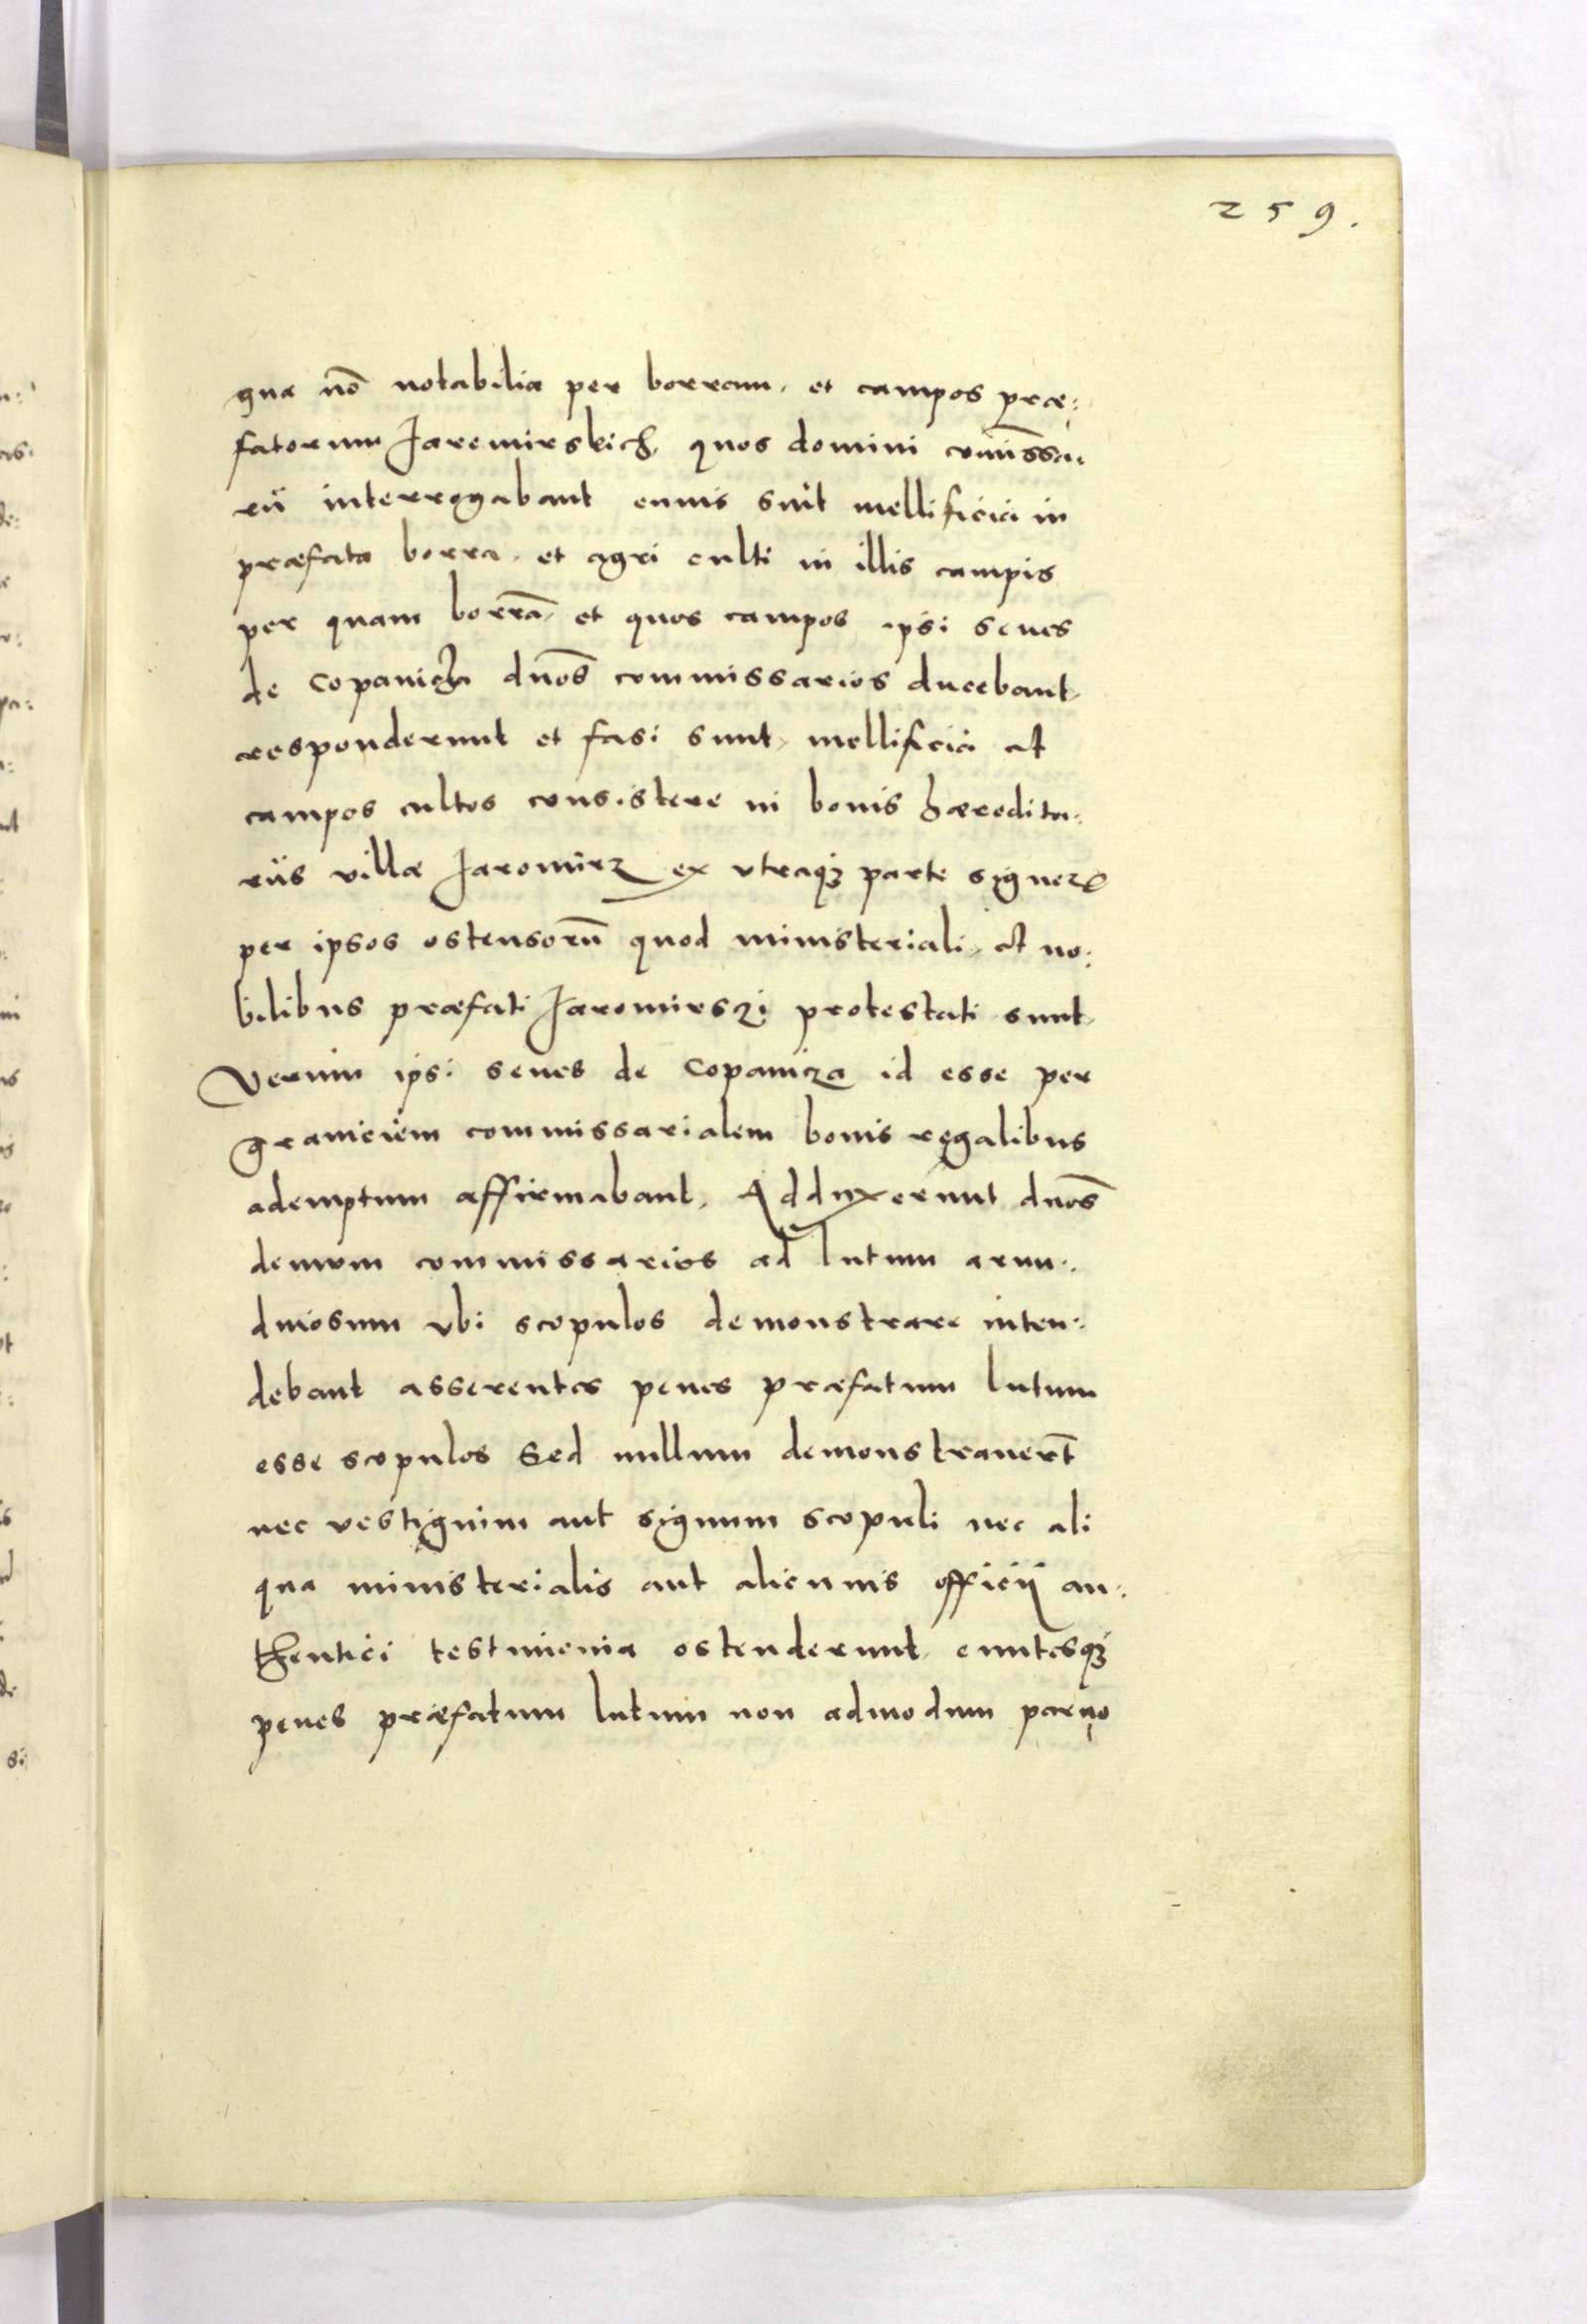 259.
gna nō notabilia per borram, et campos præ:
fatorum Jaromirskich, quos domini cōmissa:
rii interrogabant cuius sūt mellificia in
præfata borra, et agri culti in illis campis
per quam borrā, et quos campos ipsi senes
de Copanicza dnōs commissarios ducebant,
responderunt et fasi sunt, mellificia et
campos cultos consistere in bonis hæredita:
riis villæ Jaromirz ex vtraq3 parte signor2
per ipsos ostensorū quod ministeriali, et no:
bilibus præfati Jaromirszi protestati sunt,
Verum ipsi senes de Copanicza id esse per
graniciem commissarialem bonis regalibus
ademptum affirmabant, Adduxerunt dnōs
demum commissarios ad lutum arun:
dinosum vbi scopulos demonstrare inten:
debant asserentes penes præfatum lutum
esse scopulos Sed nullum demonstrauert̄
nec vestigium aut signum scopuli nec ali
qua ministerialis aut alicuius officij au:
thentici testimonia ostenderunt, euntesq3
penes præfatum lutum non admodum paruo